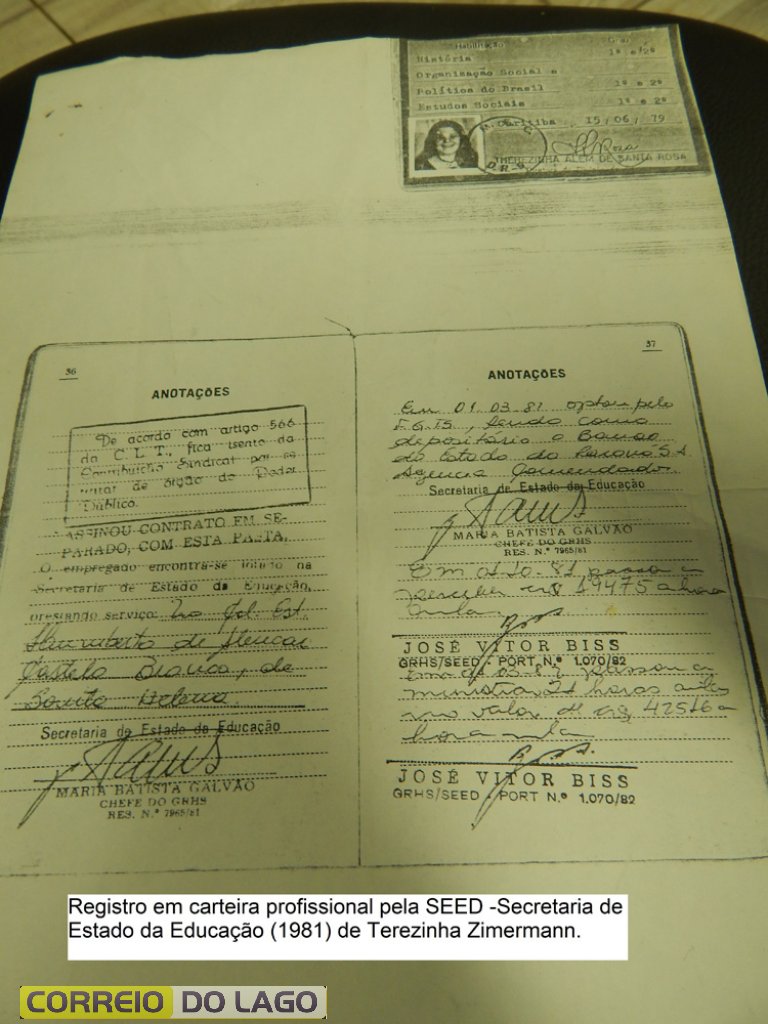 Habilitação Grau
História 1º e 2º
Organização Social e
Política do Brasil 1º e 2º
Estudos Sociais 1º e 2º
Curitiba 15/06/79
THEREZINHA ALEM DE SANTA ROSA
36
ANOTAÇÕES
De acordo com artigo 566
da C.L.T., fica isento da
Contribuição Sindical por se
tratar de órgão do Poder
Público.
ASSINOU CONTRATO EM SE-
PARADO, COM ESTA PASTA.
O empregado encontra-se lotado na
Secretaria de Estado da Educação,
prestando serviço: no Col. Est.
Humberto de Alencar
Castelo Branco, de
Santa Helena.
Secretaria de Estado da Educação
MARIA BATISTA GALVÃO
CHEFE DO GRHS
RES. N.º 7965/81
37
ANOTAÇÕES
Em 01.03.81 optou pelo
F.G.T.S, sendo como
depositário o Banco
do Estado do Paraná S.A
Agencia Comendador
Secretaria de Estado da Educação
MARIA BATISTA GALVÃO
CHEFE DO GRHS
RES. N.º 7965/81
Em 01.10.81 passou a
perceber cr$ 19475 a hora
aula.
JOSÉ VITOR BISS
GRHS/SEED - PORT N.º 1.070/82
passou a
ministrar 21 horas aulas
no valor de cr$ 42516 a
hora aula
JOSÉ VITOR BISS
GRHS/SEED - PORT N.º 1.070/82
Registro em carteira profissional pela SEED -Secretaria de
Estado da Educação (1981) de Terezinha Zimermann.
CORREIO DO LAGO